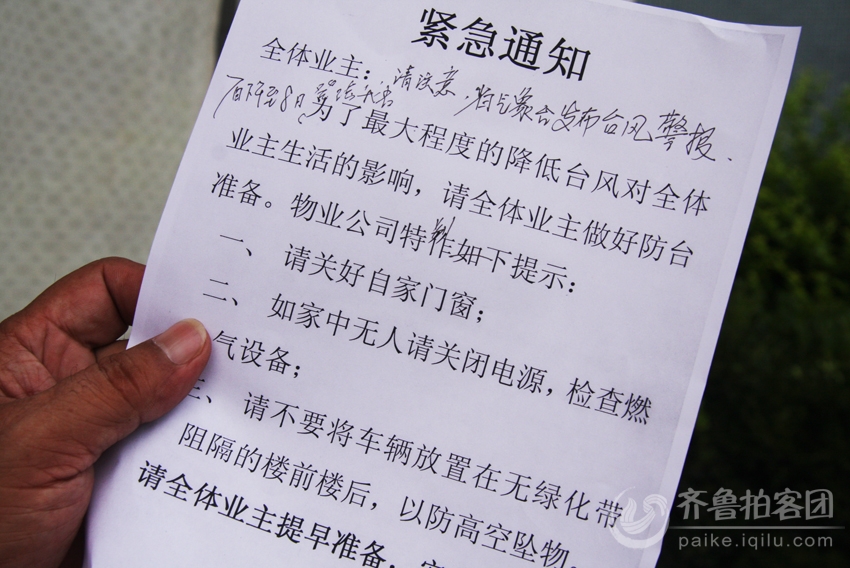 紧急通知
全体业主：请注意，省气象台发布台风警报、
为了最大程度的降低台风对全体
业主生活的影响，请全体业主做好防台
准备。物业公司特作如下提示：
一、请关好自家门窗；
二、如家中无人请关闭电源，检查燃
气设备；
三、请不要将车辆放置在无绿化带
阻隔的楼前楼后，以防高空坠物。
请全体业主提早准备，
齐鲁拍客团
paike.iqilu.com